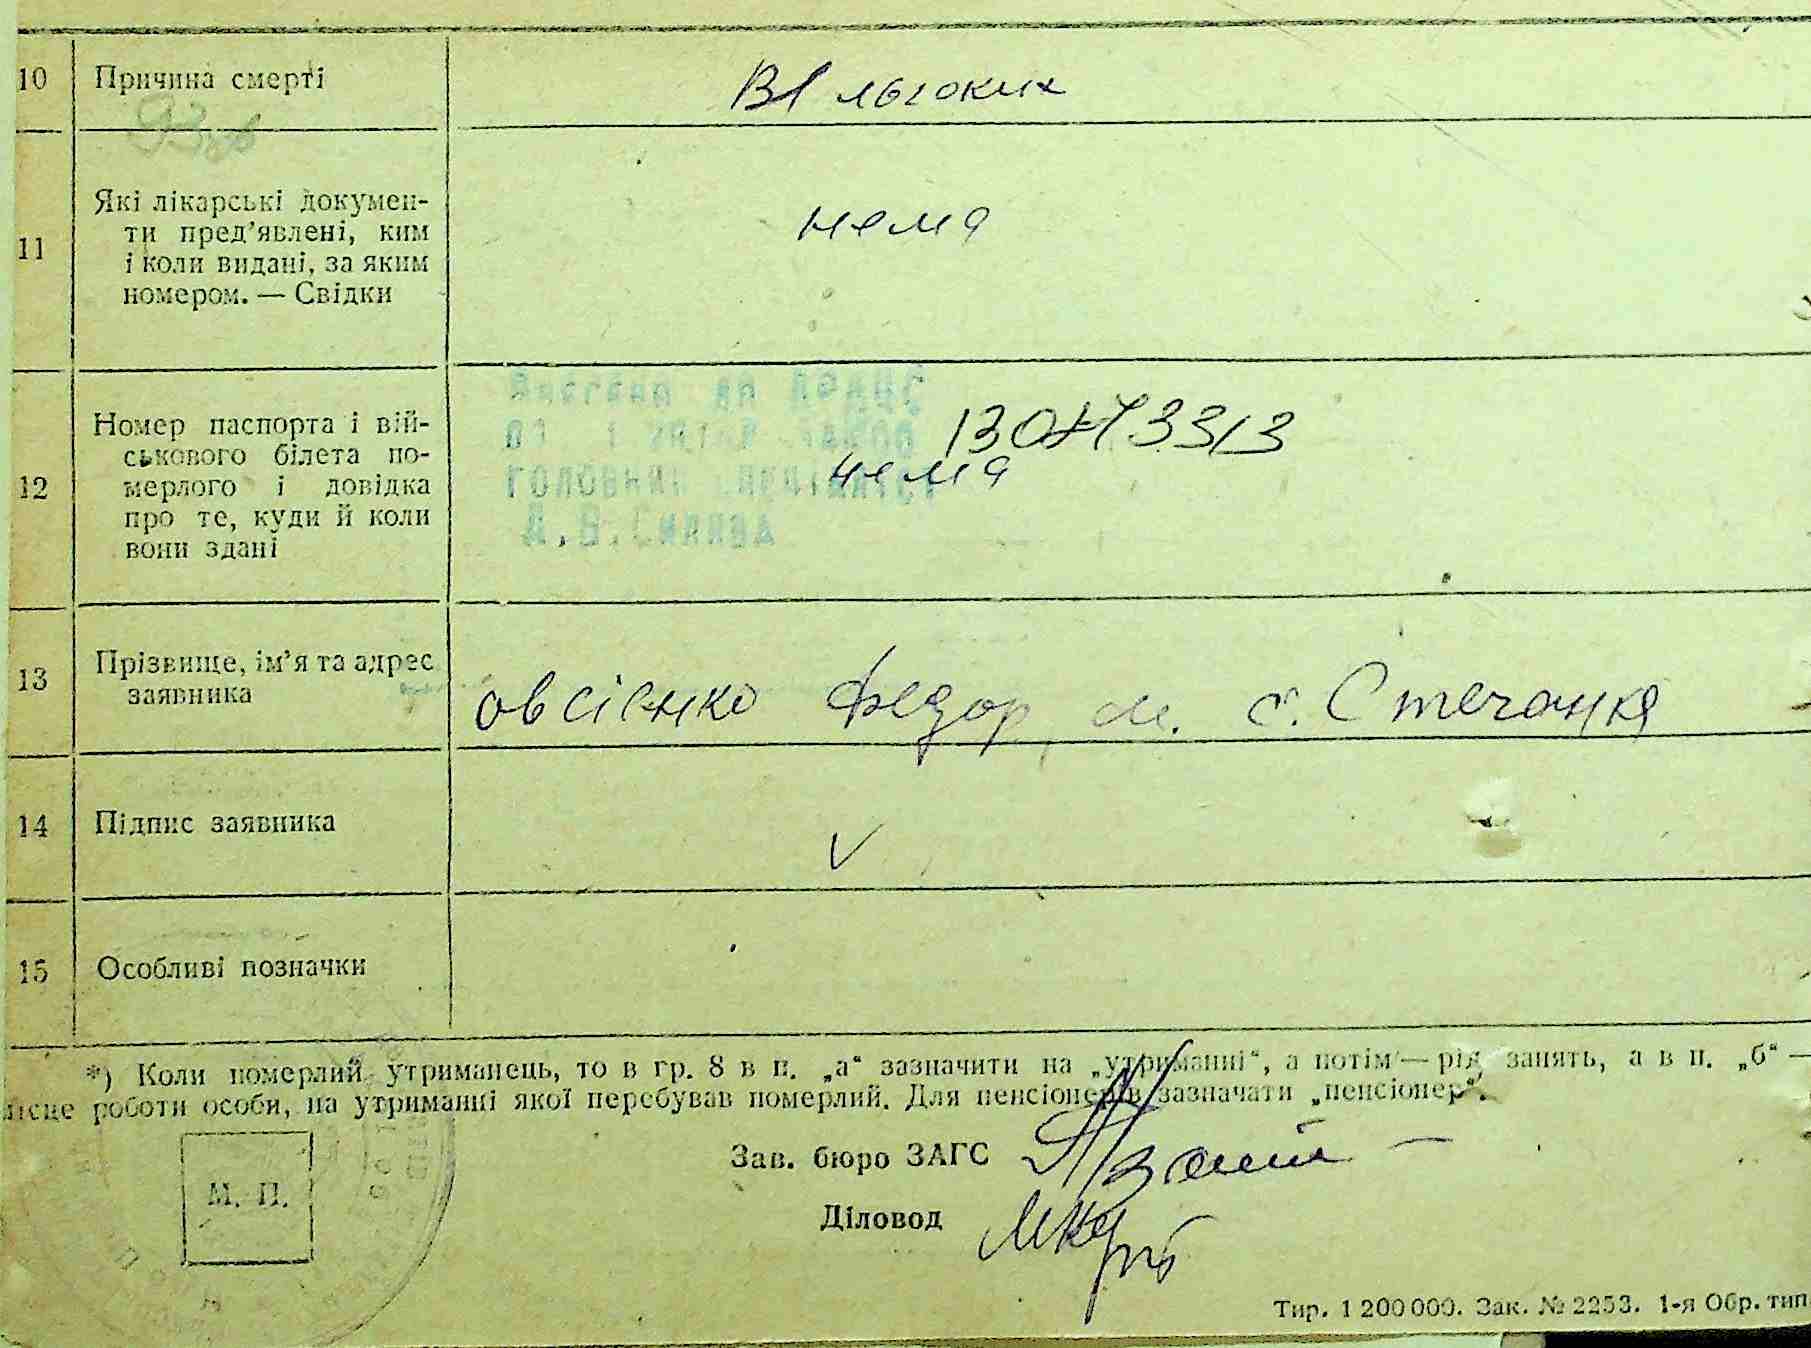 10 Причина смерті
нема
Які лікарські докумен-
ти пред’явлені, ким
11
і коли видані, за яким
номером. — Свідки
Номер паспорта і вій-
ськового білета по-
12 мерлого і довідка нема
про те, куди й коли
вони здані
13 Прізвище, ім’я та адрес
заявника
овсієнко Федор, м. с. Стечанка
14 Підпис заявника
V
15 Особливі позначки
*) Коли померлий утриманець, то в гр. 8 в п. „а“ зазначити на „утриманні“, а потім — рід занять, а в п. „б“ —
місце роботи особи, на утриманні якої перебував померлий. Для пенсіонерів зазначати „пенсіонер“.
Зав. бюро ЗАГС
М. П.
Діловод
Тир. 1 200 000. Зак. № 2253. 1-я Обр. тип.